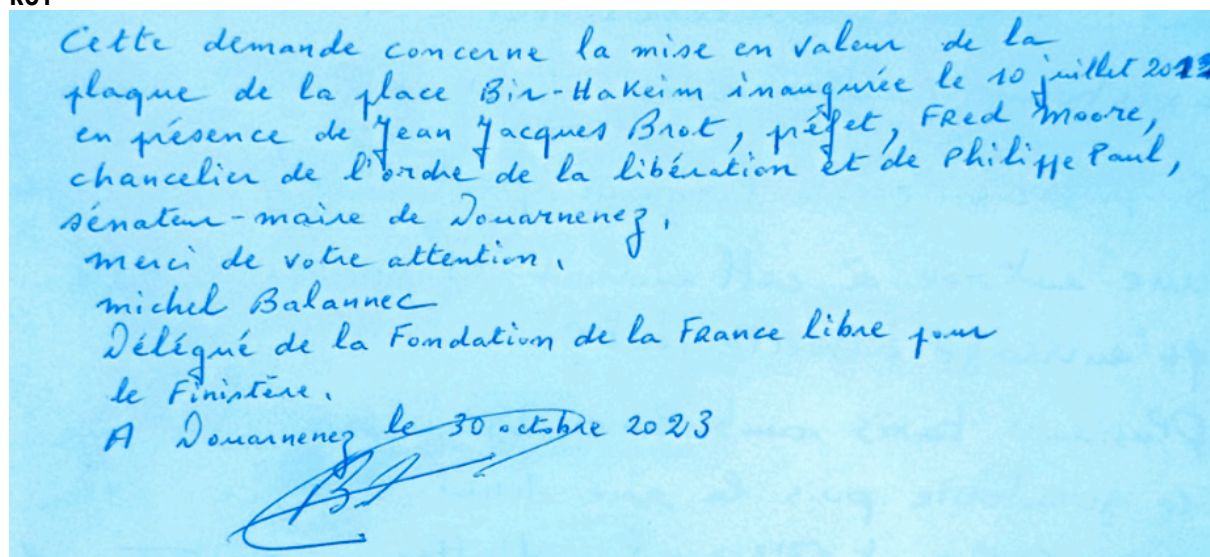 Cette demande concerne la mise en valeur de la
plaque de la place Bir-Hakeim inaugurée le 10 juillet
en présence de Jean Jacques Brot, préfet, Fred Moore,
chancelier de l'ordre de la libération et de Philippe Paul,
sénateur-maire de Douarnenez,
merci de votre attention,
michel Balannec
Délégué de la Fondation de la France libre pour
le Finistère.
A Douarnenez le 30 octobre 2023